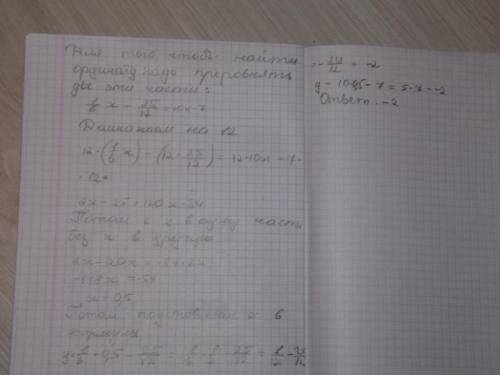 Для того чтобы найти
ординату надо прировнять
две эти части:
1/6 x - 25/12 = 10x - 7
Домножаем на 12
12·(1/6 x) - (12·25/12) = 12·10x - 7·
·12
2x - 25 = 120x - 84
Потом с x в одну часть
без x в другую
-118x = -59
x = 0,5
Потом подставляем x в
формулу
y = 1/6 · 0,5 - 25/12 = 1/6 · 1/2 - 25/12 = 1/12 - 25/12
= -24/12 = -2
y = 10·0,5 - 7 = 5 - 7 = -2
Ответ: -2